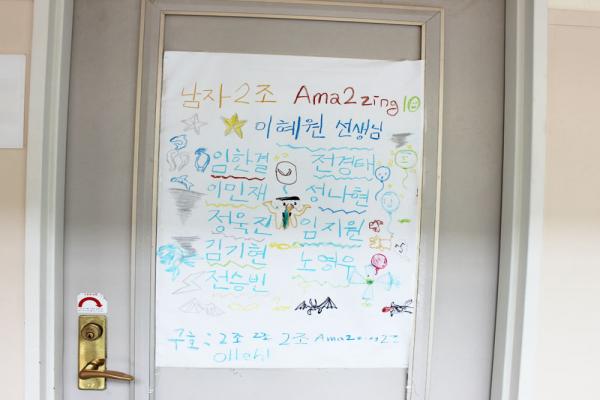 남자2조 Ama2zing
이혜원 선생님
임한결 전경태
이민재 성나현
정욱진 임지원
김기현 노영우
전승빈
구호 : 2조 2조 2조 Ama2zing2조
Olleh!